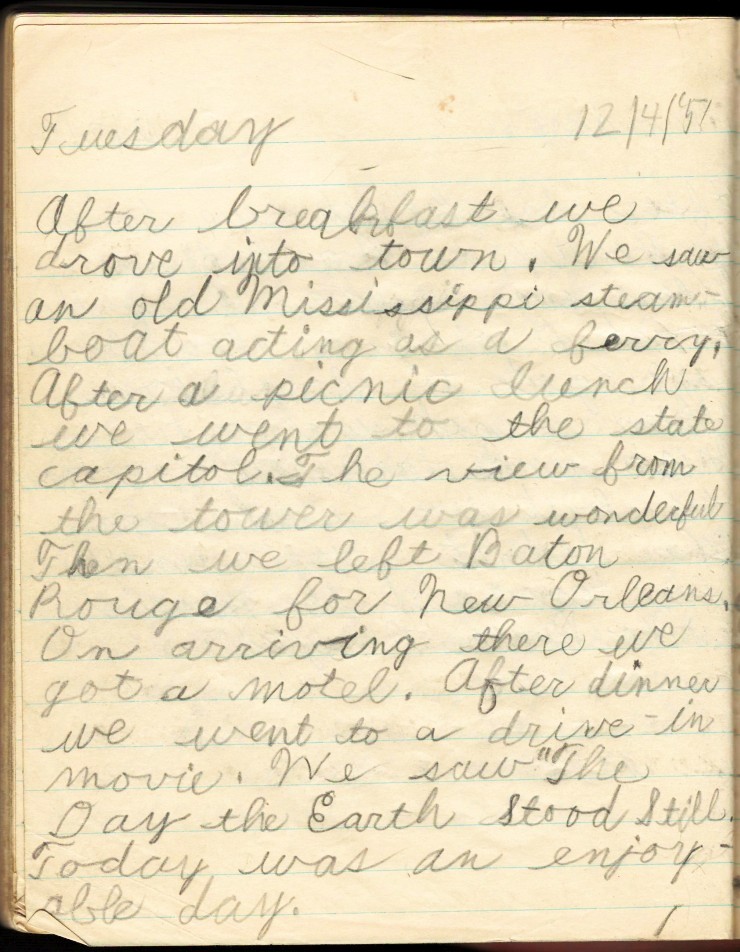 Tuesday 12/4/'51
After breakfast we
drove into town. We saw
an old Mississippi steam-
boat acting as a ferry.
After a picnic lunch
we went to the state
capitol. The view from
the tower was wonderful
Then we left Baton
Rouge for New Orleans.
On arriving there we
got a motel. After dinner
we went to a drive-in
movie. We saw "The
Day the Earth Stood Still.
Today was an enjoy-
able day.
1